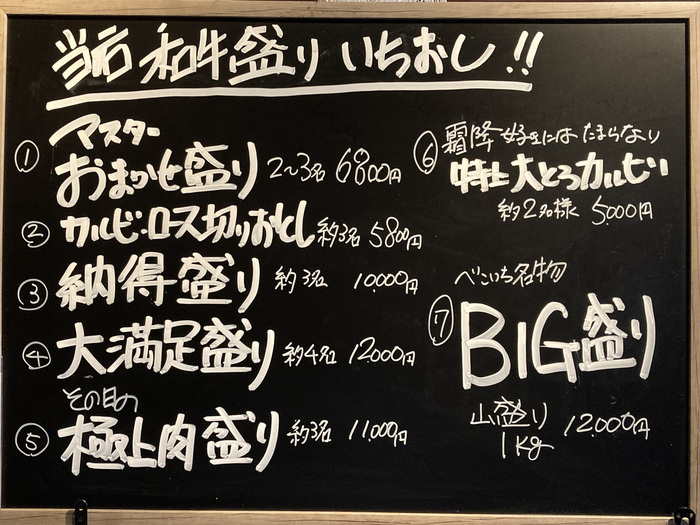 当店 和牛盛り いちおし!!
① マスター
おまかせ盛り 2~3名 6800円
② カルビ・ロース切りおとし 約3名 5800円
③ 納得盛り 約3名 10.000円
④ 大満足盛り 約4名 12000円
その日の
⑤ 極上肉盛り 約3名 11.000円
⑥ 霜降好きにはたまらない
特上大とろカルビ
約2名様 5.000円
べこいち名物
⑦ BIG盛り
山盛り 12.000円
1kg